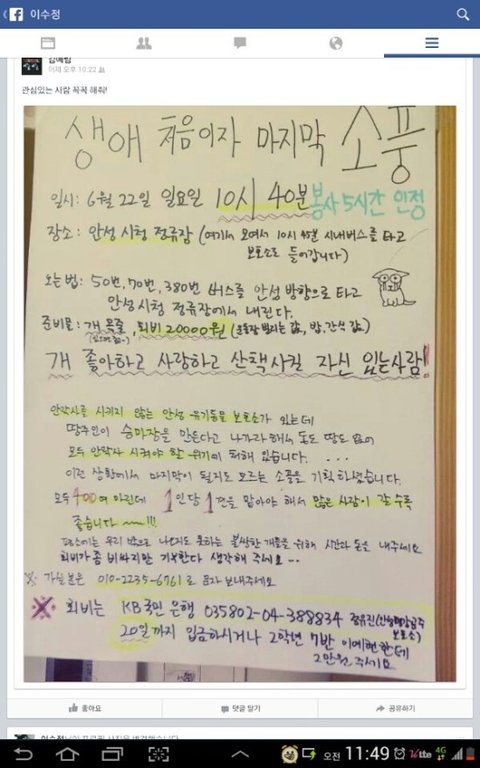 이수정
어제 오후 10:22
관심있는 사람 꼭꼭 해줘!
생애 처음이자 마지막 소풍
일시: 6월 22일 일요일 10시 40분 봉사 5시간 인정
장소: 안성 시청 정류장 (여기서 모여서 10시 45분 시내버스를 타고
보호소로 들어갑니다)
오는법: 50번, 70번, 380번 버스를 안성 방향으로 타고
안성시청 정류장에서 내린다.
준비물: 개 목줄, 회비 20000원 (운동장 빌리는 값, 밥, 간식 값)
개 좋아하고 사랑하고 산책시킬 자신 있는사람!
안락사를 시키지 않는 안성 유기동물 보호소가 있는데
땅주인이 승마장을 만든다고 나가라 해서 돈도 땅도 없어
모두 안락사 시켜야 할 위기에 처해 있습니다. ...
이런 상황에서 마지막이 될지도 모르는 소풍을 기획하셨습니다.
모두 400여 마린데 1인당 1견을 맡아야 해서 많은 사람이 갈 수록
좋습니다 ~!!!
평소에는 우리 밖으로 나오지도 못하는 불쌍한 개들을 위해 시간과 돈을 내주세요
회비가 좀 비싸지만 기부한다 생각해 주세요..
※ 가실분은 010-2235-6761로 문자 보내주세요
※ 회비는 KB국민 은행 035802-04-388834 정유진
보호소)
20일까지 입금하시거나 2학년 7반 이예현한테
2만원 주세요
좋아요 댓글 달기 공유하기
이수정님이 프로필 사진을 변경했습니다
오전 11:49 4G